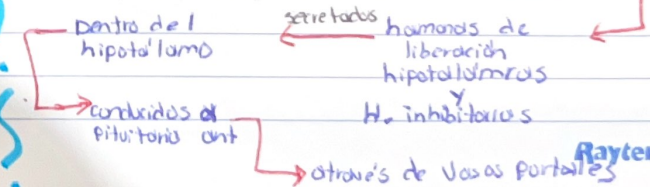 secretados
Dentro del
hipotálamo
hormonas de
liberación
hipotalámicas
y
H. inhibitorias
conducidos al
Pituitaria ant
através de vasos portales
Rayter